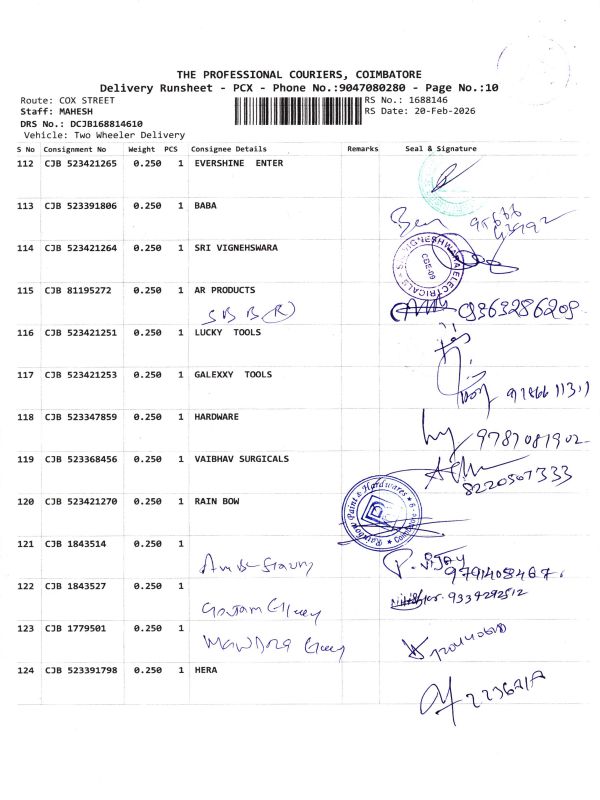 THE PROFESSIONAL COURIERS, COIMBATORE
Delivery Runsheet - PCX - Phone No.:9047080280 - Page No.:10
Route: COX STREET
Staff: MAHESH
DRS No.: DCJB168814610
Vehicle: Two Wheeler Delivery
RS No.: 1688146
RS Date: 20-Feb-2026
S No Consignment No Weight PCS Consignee Details Remarks Seal & Signature
112 CJB 523421265 0.250 1 EVERSHINE ENTER
113 CJB 523391806 0.250 1 BABA
114 CJB 523421264 0.250 1 SRI VIGNEHSWARA
SRI VIGNESHWARA ELECTRICALS
CBE-09
115 CJB 81195272 0.250 1 AR PRODUCTS
S B B (R) 9363286209
116 CJB 523421251 0.250 1 LUCKY TOOLS
117 CJB 523421253 0.250 1 GALEXXY TOOLS
118 CJB 523347859 0.250 1 HARDWARE
9787081902
119 CJB 523368456 0.250 1 VAIBHAV SURGICALS
8220507333
120 CJB 523421270 0.250 1 RAIN BOW
Rainbow Paint & Hardwares
121 CJB 1843514 0.250 1
P. VIJAY
9791408467.
122 CJB 1843527 0.250 1
Goutam 9337292512
123 CJB 1779501 0.250 1
124 CJB 523391798 0.250 1 HERA